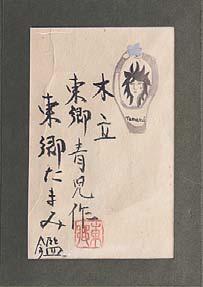 木立
東郷青児作
東郷たまみ
鑑
Tamami